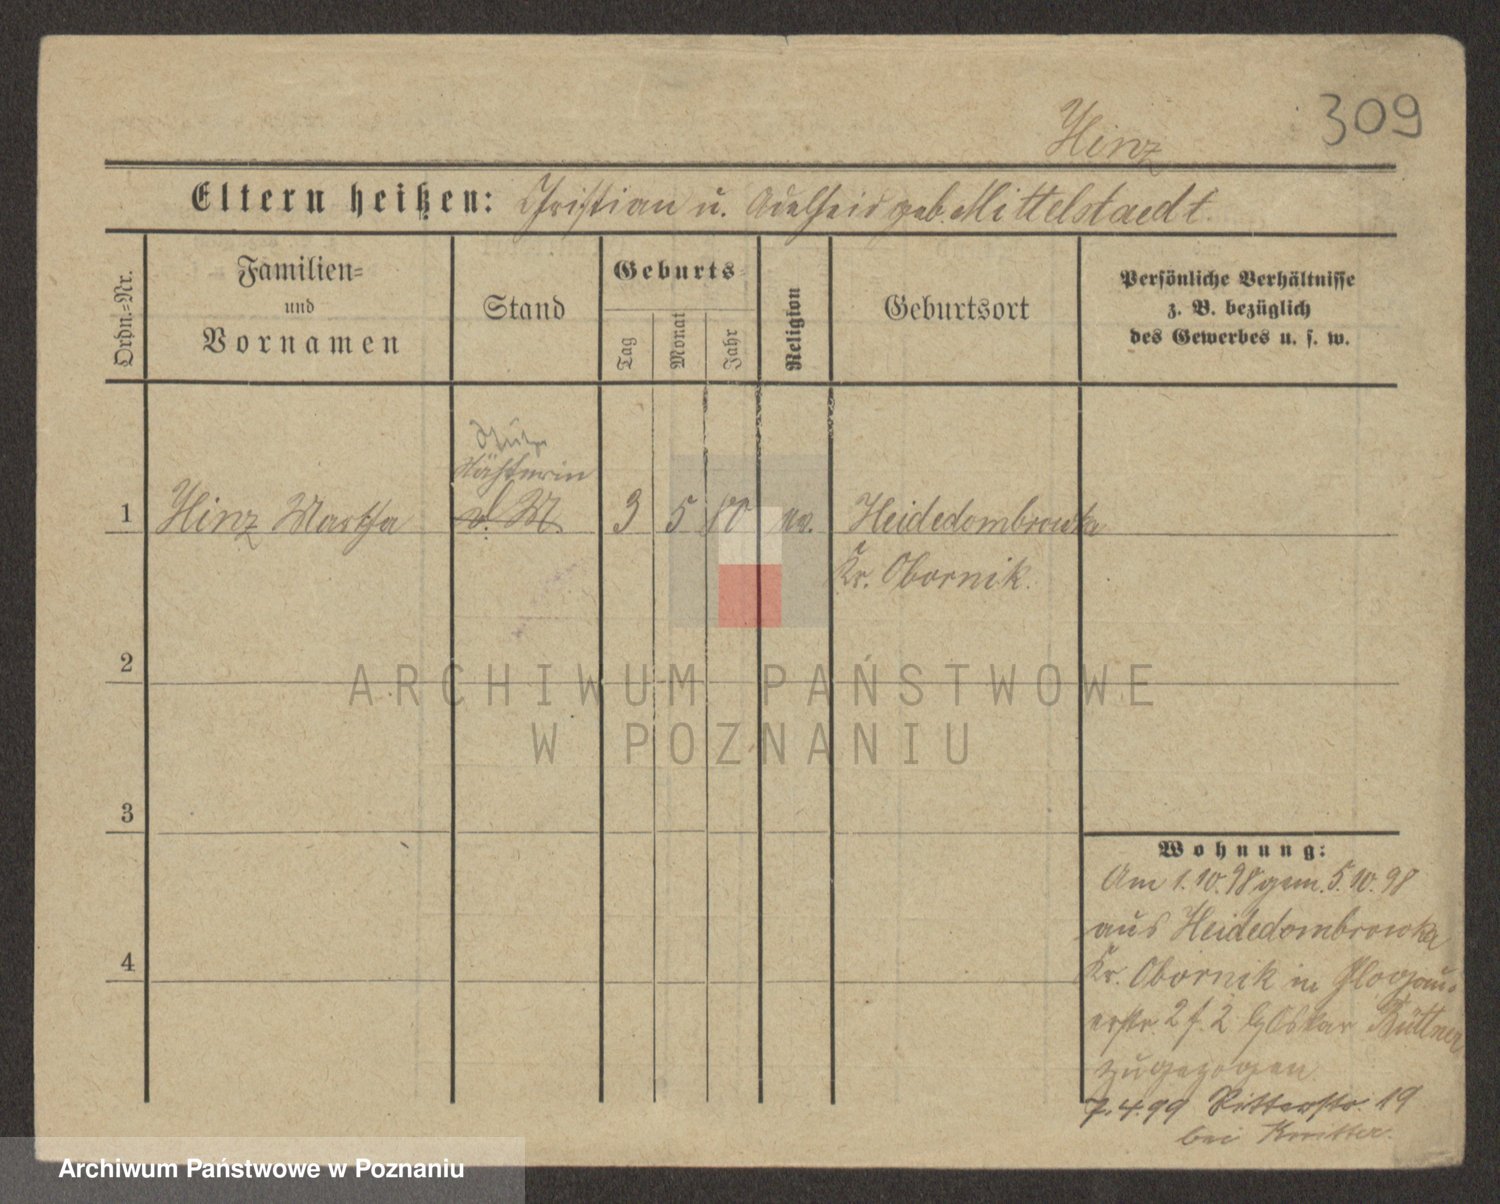 309
Hinz
Eltern heißen: Christian u. Adelheid geb. Mittelstaedt.
Ordn.=Nr.
Familien=
und
Vornamen
Stand
Geburts=
Tag
Monat
Jahr
Religion
Geburtsort
Persönliche Verhältnisse
z. B. bezüglich
des Gewerbes u. s. w.
Nähterin
1 Hinz Martha d. M. 3 5 80 ev. Heidedombrowka
Kr. Obornik.
2
3
4
Wohnung:
Am 1.10.98 gem. 5.10.98
aus Heidedombrowka
Kr. Obornik in Glogau-
erstr. 2 b. Oskar Büttner
zugezogen
7.4.99 Ritterstr. 19
bei Knitter.
ARCHIWUM PAŃSTWOWE
W POZNANIU
Archiwum Państwowe w Poznaniu